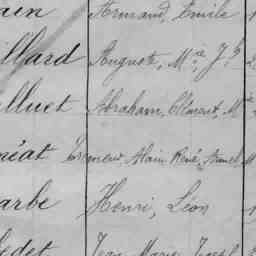 ain Armand, Emile
illard Auguste, Mie, Jh
lluet Abraham, Clément, Mie
néat Alain René, M
arbe Henri, Léon
Jean Marie Joseph